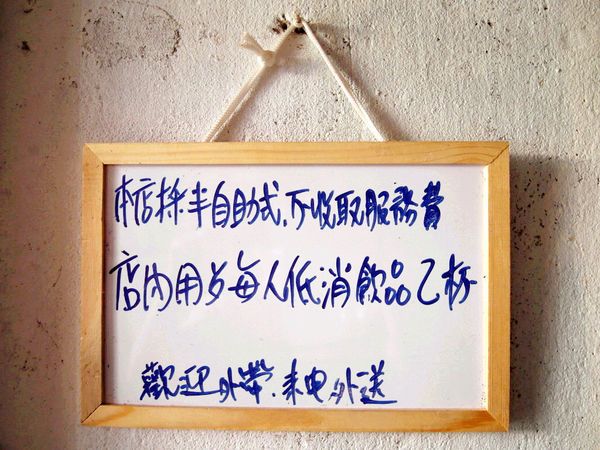 本店採半自助式.不收取服務費
店內用歺每人低消飲品乙杯
歡迎外帶.來电外送